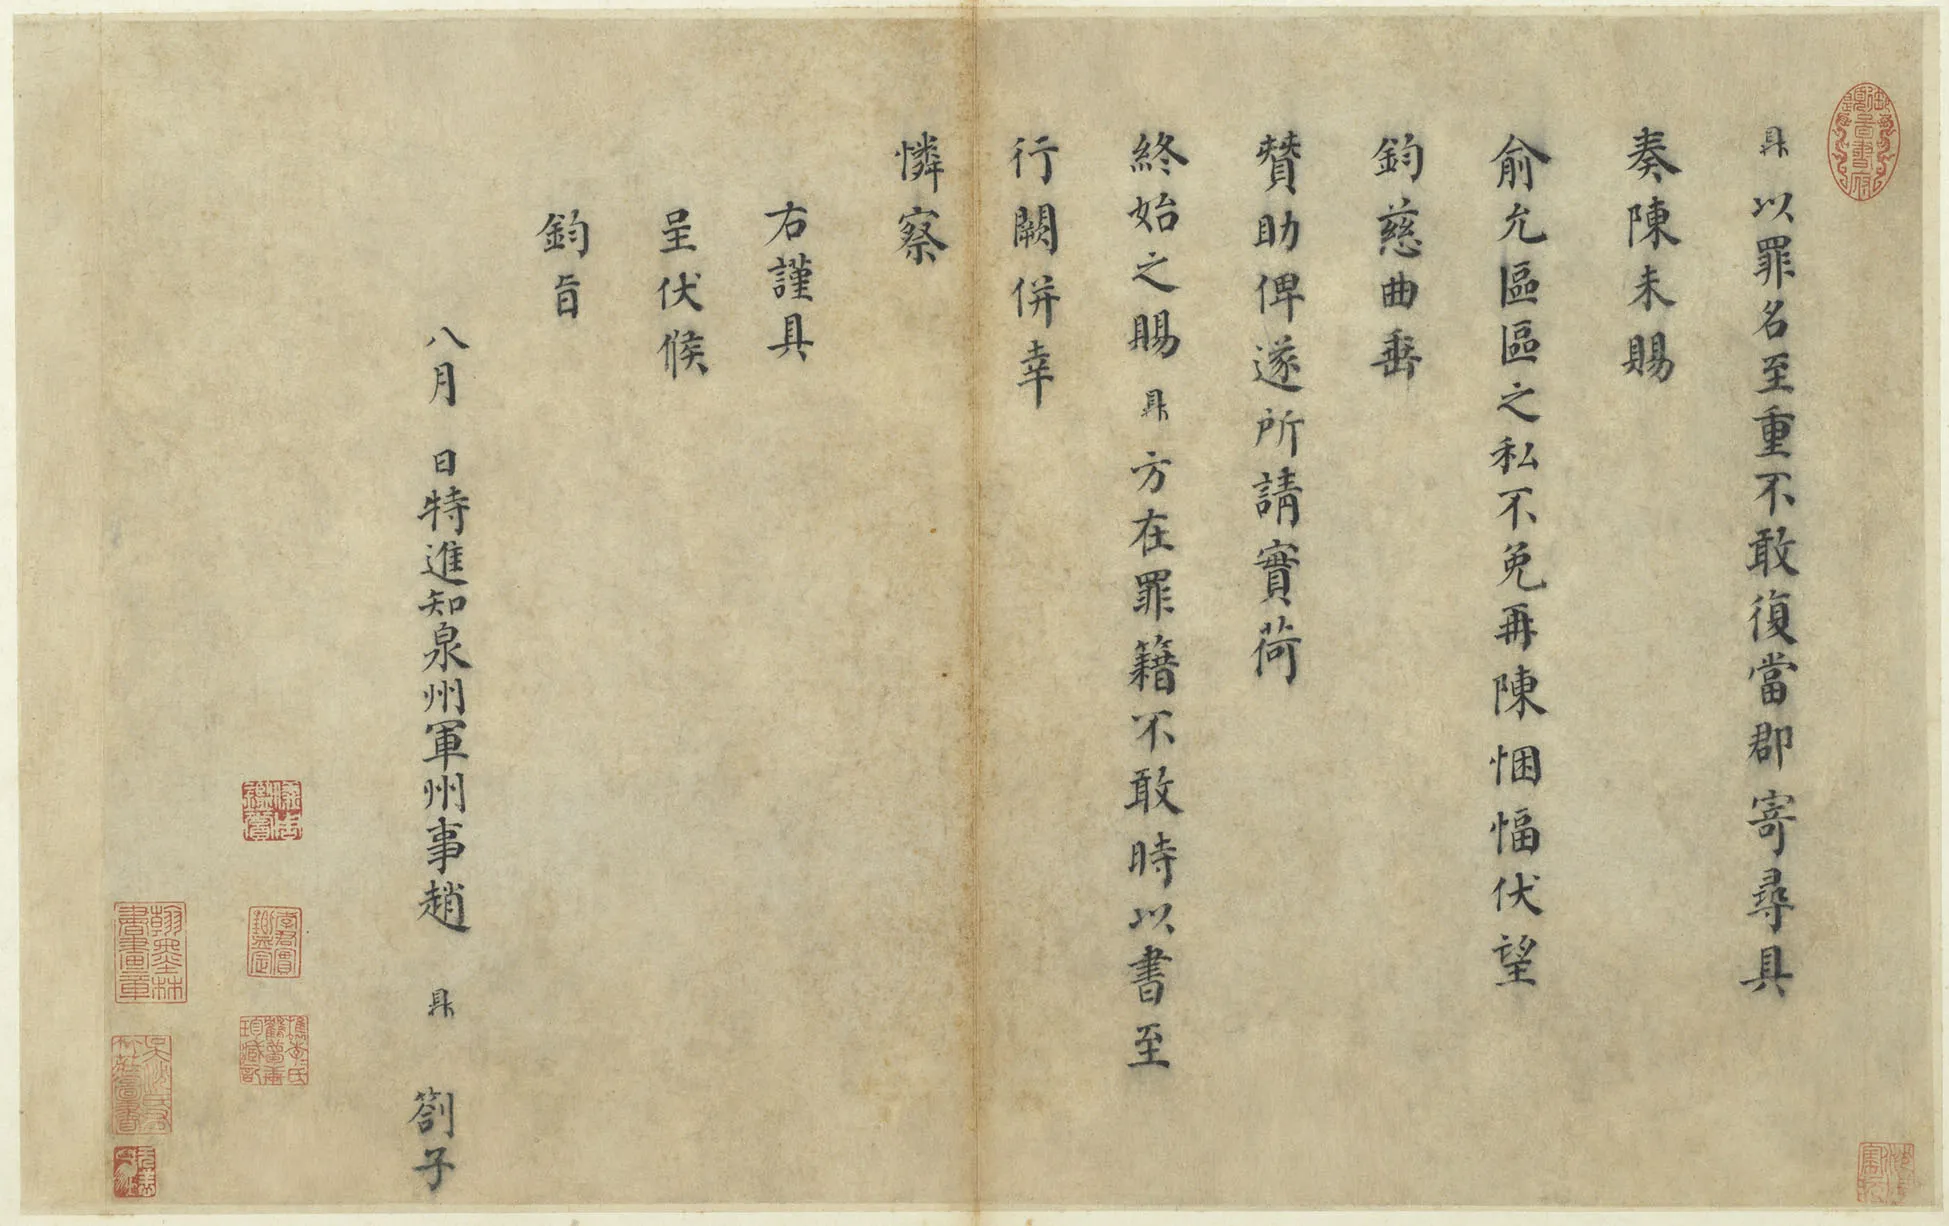 鼎以罪名至重不敢復當郡寄尋具
奏陳未賜
俞允區區之私不免再陳悃愊伏望
鈞慈曲垂
贊助俾遂所請實荷
終始之賜鼎方在罪籍不敢時以書至
行闕併幸
憐察
右謹具
呈伏候
鈞旨
八月 日特進知泉州軍州事趙 鼎 劄子